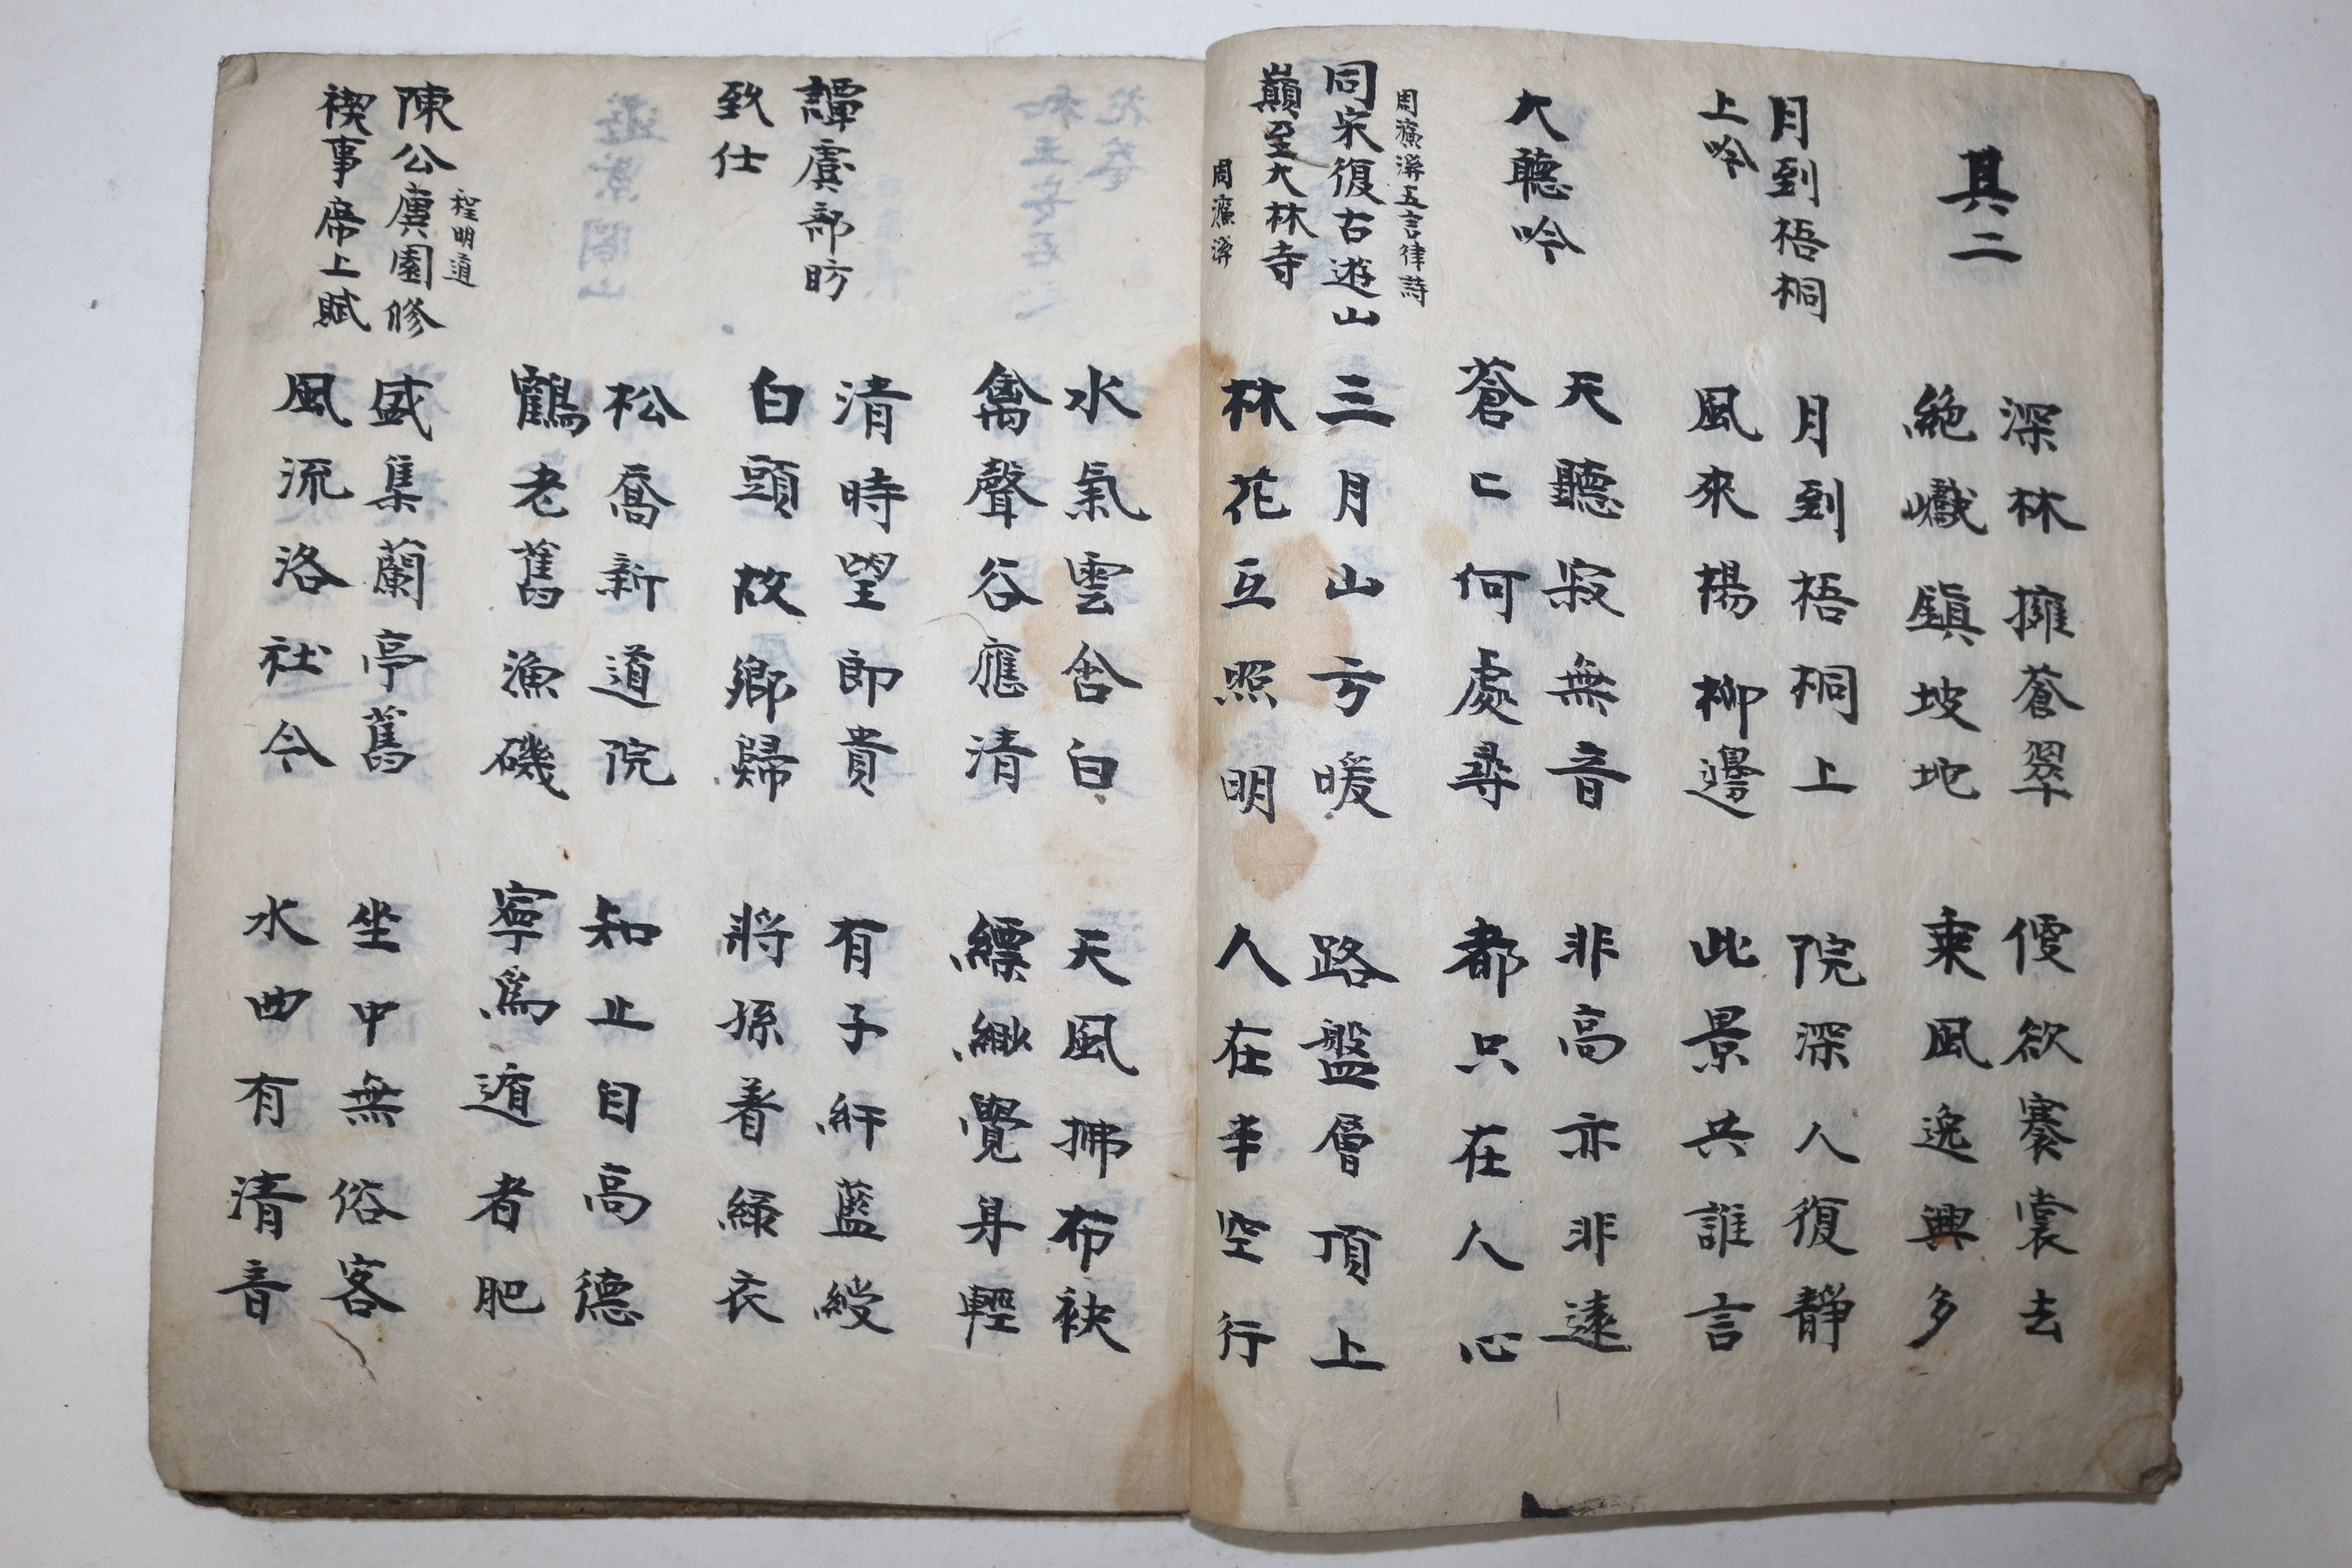 其二
深林擁蒼翠　便欲褰裳去
絶巘鎮坡地　乘風逸興多
月到梧桐
上吟
月到梧桐上　院深人復靜
風來楊柳邊　此景共誰言
大聽吟
天聽寂無音　非高亦非遠
蒼〻何處尋　都只在人心
周濂溪五言律詩
同宋復古遊山
巔至大林寺
周濂溪
三月山方暖　路盤層頂上
林花互照明　人在半空行
水氣雲含白　天風拂布袂
禽聲谷應清　縹緲覺身輕
譚虞部昉
致仕
清時望郎貴　有子紆藍綬
白頭故鄉歸　將孫着綠衣
松喬新道院　知止自高德
鶴老舊漁磯　寧爲遁者肥
程明道
陳公廙園修
禊事席上賦
盛集蘭亭舊　坐中無俗客
風流洛社今　水曲有清音